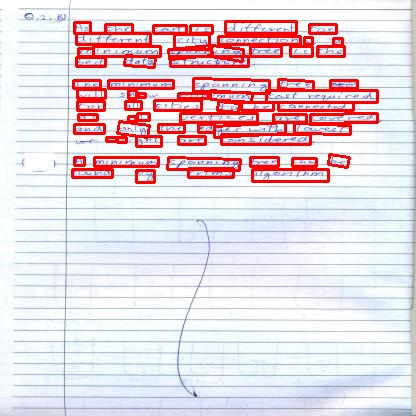 Q.2. B)
As the cost is different for
different city connection
minimum spanning tree is the
best data structure.
The minimum spanning tree
will show minimum cost required
for all cities to be connected
vertices are covered
and only the edges with lowest
weight are considered
A minimum spanning tree can be
found by Prims algorithm